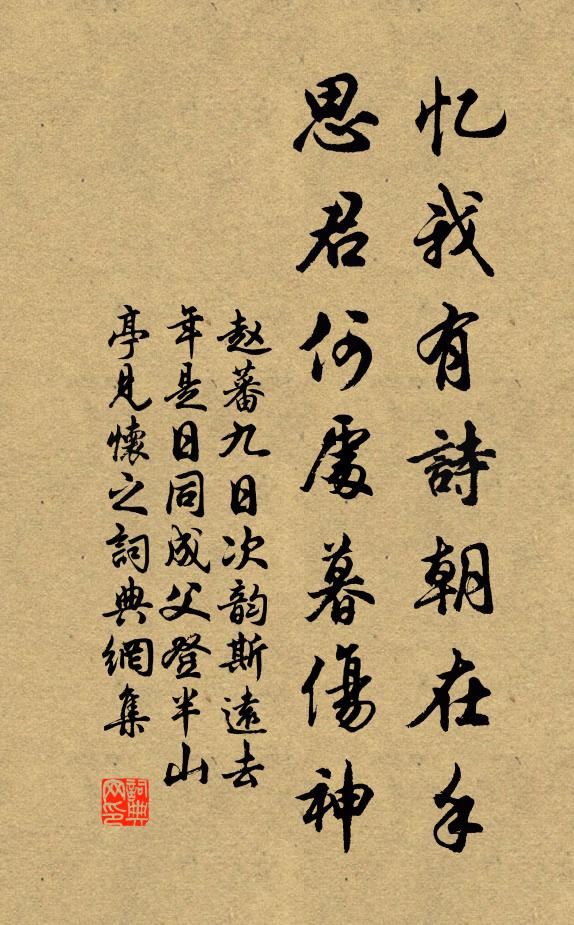 忆我有詩朝在手
思君何處暮傷神
赵蕃九日次韵斯遠去
年是日同成父登半山
亭見懷之詞典網集
詞典网印